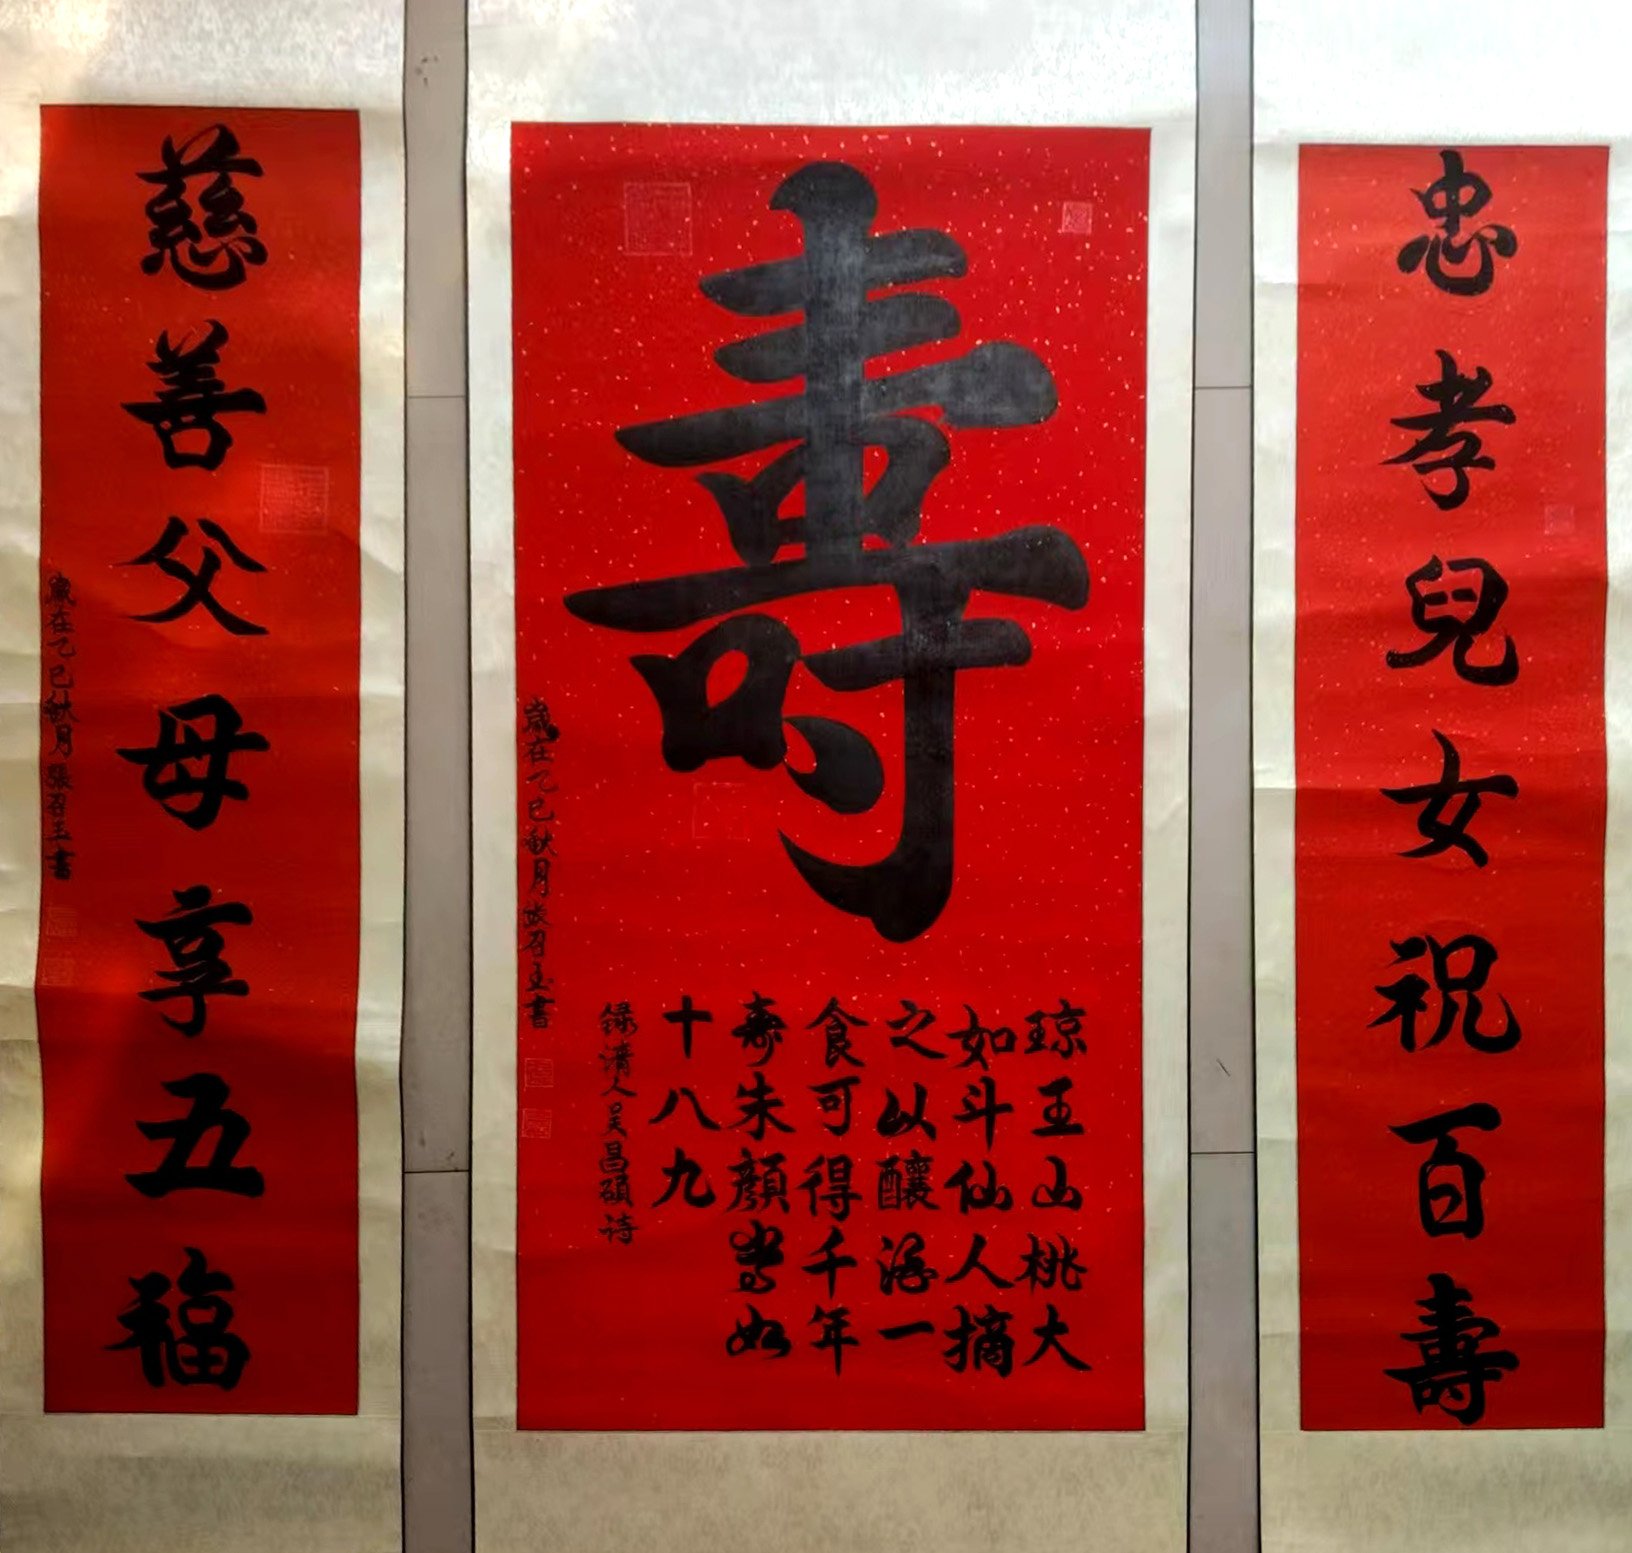 忠孝兒女祝百壽
壽
琼玉山桃大
如斗仙人摘
之以釀酒一
食可得千年
壽朱顏常如
十八九
録清人吴昌碩诗
歲在乙巳秋月張召玉書
慈善父母享五福
歲在乙巳秋月張召玉書